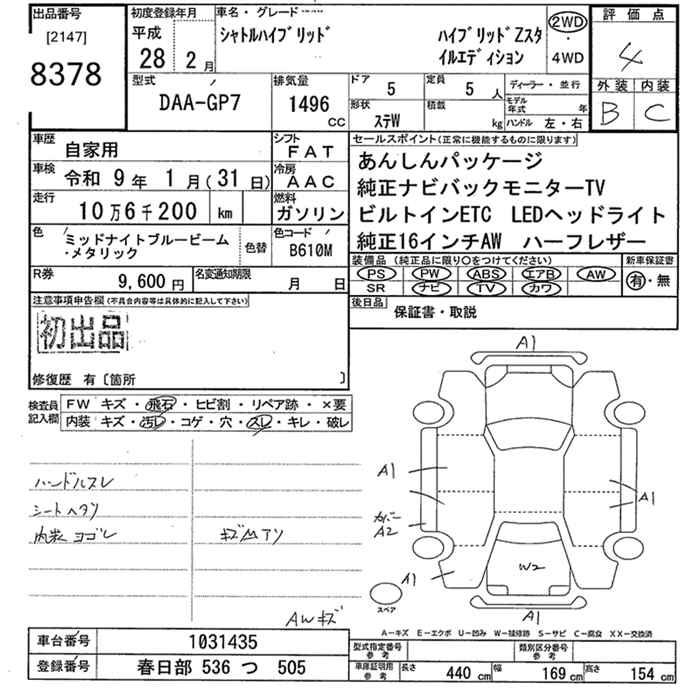 出品番号
[2147]
8378
初度登録年月
平成
28 2 月
車名・グレード
シャトルハイブリッド
ハイブリッドZスタイルエディション
2WD
・
4WD
評価点
4
外装 内装
B C
型式
DAA-GP7
排気量
1496
CC
ドア
5
定員
5 人
形状
ステW
積載
kg
ディーラー・並行
モデル年式 年
ハンドル 左・右
車歴
自家用
シフト
FAT
車検
令和 9 年 1 月(31 日)
冷房
AAC
走行
10 万 6 千 200 km
燃料
ガソリン
色
ミッドナイトブルービーム
・メタリック
色替
色コード
B610M
R券
9,600 円
名変通知期限
月 日
セールスポイント(正常に機能するものに限ります)
あんしんパッケージ
純正ナビバックモニターTV
ビルトインETC LEDヘッドライト
純正16インチAW ハーフレザー
装備品(純正品に限り○をつけてください)
PS PW ABS エアB AW
SR ナビ TV カワ
新車保証書
有・無
後日品
保証書・取説
注意事項申告欄(不具合内容等は具体的に記入して下さい)
初出品
修復歴 有〔箇所 〕
検査員
記入欄
FW キズ・飛石・ヒビ割・リペア跡・×要
内装 キズ・汚レ・コゲ・穴・スレ・キレ・破レ
ハンドルスレ
シートヘタリ
内装ヨゴレ
AWキズ
A1
A1
A1
カバー
A2
A1
W2
A1
スペア
A-キズ E-エクボ U-凹み W-補修跡 S-サビ C-腐食 XX-交換済
車台番号
1031435
登録番号
春日部 536 つ 505
型式指定番号
参考
類別区分番号
参考
車庫証明用
参考
長さ 440 cm
幅 169 cm
高さ 154 cm